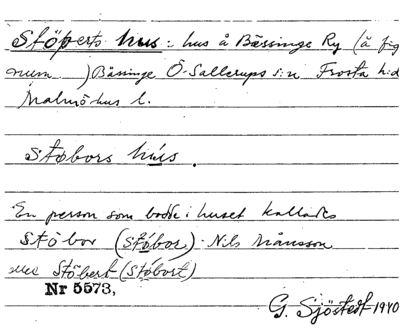 Stöperts hus: hus å Bässinge Ry (å fig
num ) Bäsinge Ö-Sallerups s:n Frosta h:d
Malmöhus l.
Støbors hús.
En person som bodde i huset kallades
Stöbor (Støbor) Nils Månsson
eller Stöbert (Støbort)
Nr 5573,
G. Sjöstedt 1940